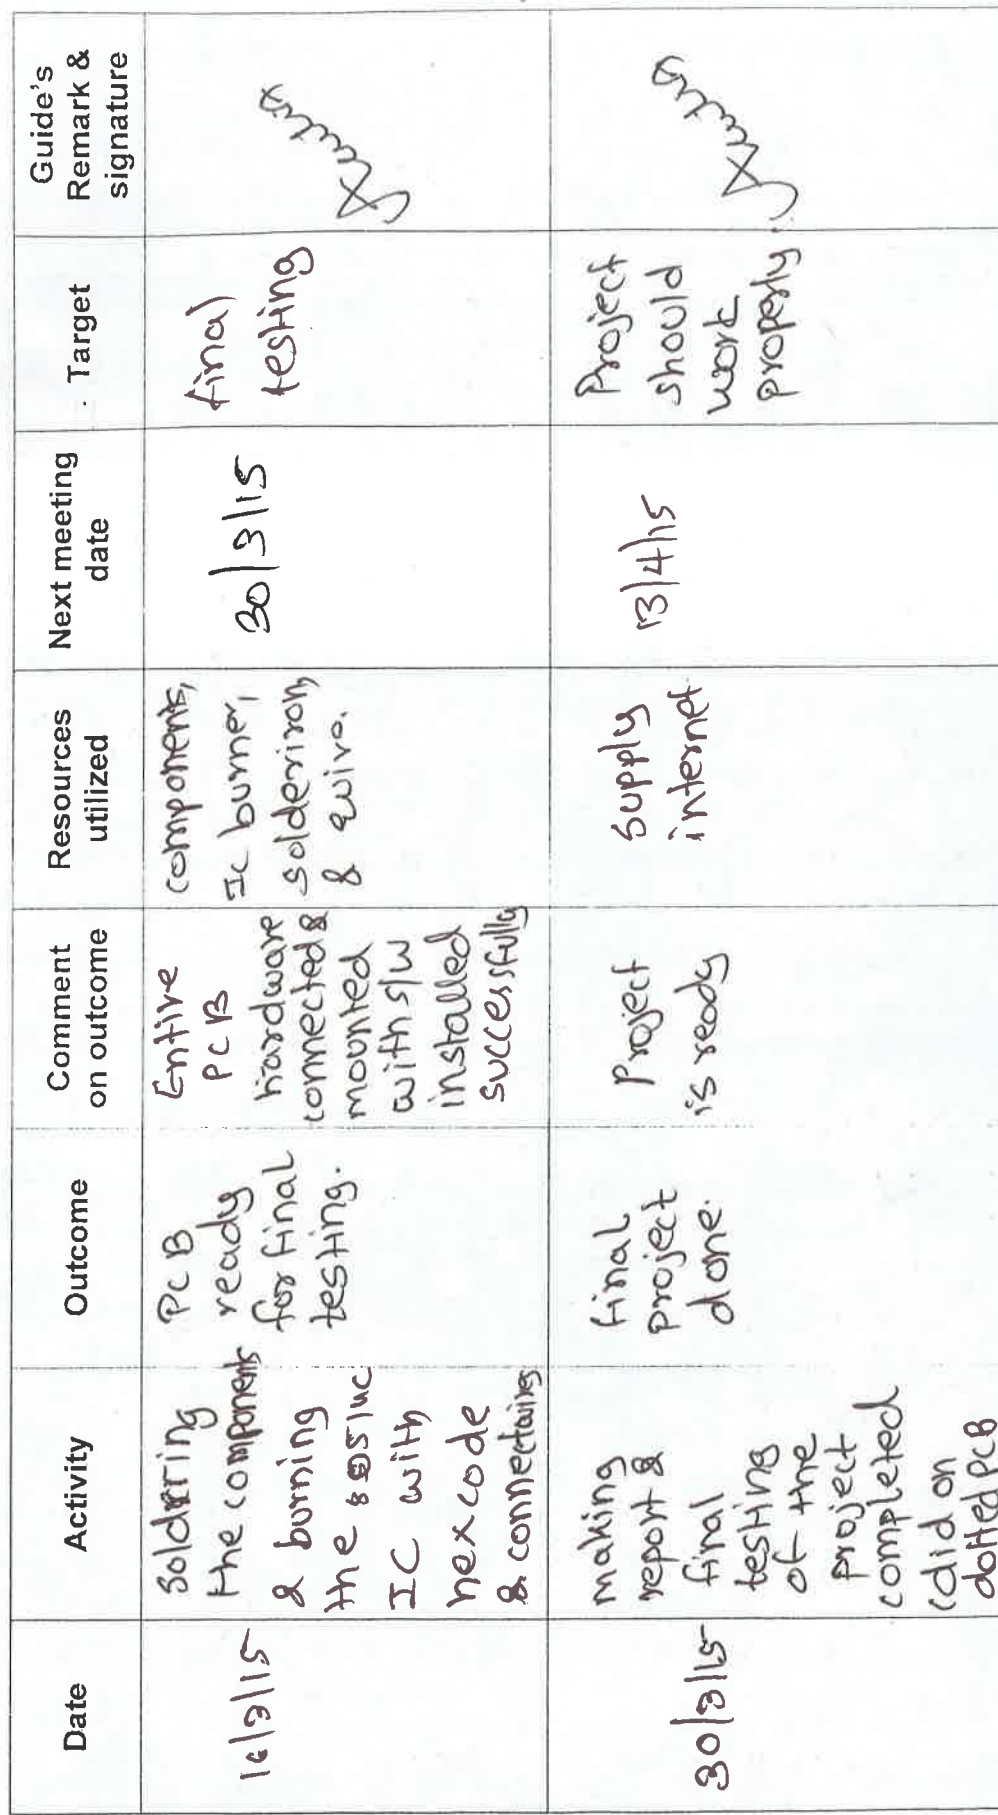 Date
Activity
Outcome
Comment
on outcome
Resources
utilized
Next meeting
date
Target
Guide's
Remark &
signature
16/3/15
Soldrring
the components
& burning
the 8051uc
IC with
hex code
& connectwires
PCB
ready
for final
testing.
Entire
PCB
hardware
connected &
mounted
with s/w
installed
successfully
components,
Ic burner,
solderiron,
& wire.
30/3/15
final
testing
30/3/15
making
report &
final
testing
of the
project
completed
(did on
dotted PCB
final
project
done.
Project
is ready
supply
internet
13/4/15
Project
should
work
properly.